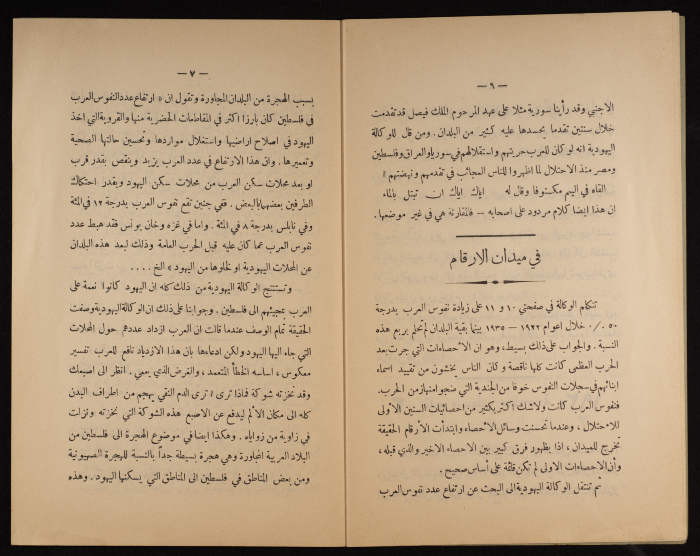 — ٦ —
الاجنبي وقد رأينا سورية مثلا على عهد المرحوم الملك فيصل قد تقدمت
خلال سنتين تقدما يحسدها عليه كثير من البلدان . ومن قال للوكالة
اليهودية انه لو كان للعرب حريتهم واستقلالهم في سوريا والعراق وفلسطين
ومصر منذ الاحتلال لما اظهروا للناس العجائب في تقدمهم ونهضتهم ؟
القاه في اليم مكتوفا وقال له اياك اياك ان تبتل بالماء
ان هذا ايضا كلام مردود على اصحابه — فالمقارنة هي في غير موضعها .
في ميدان الارقام
تتكلم الوكالة في صفحتي ١٠ و ١١ على زيادة نفوس العرب بدرجة
٥٠ ./٠ خلال اعوام ١٩٢٢ — ١٩٣٥ بينما بقية البلدان لم تحلم بربع هذه
النسبة . والجواب على ذلك بسيط ، وهو ان الاحصاءات التي جرت بعد
الحرب العظمى كانت كلها ناقصة وكان الناس يخشون من تقييد اسماء
ابنائهم في سجلات النفوس خوفا من الجندية التي ضجوا منها زمن الحرب .
فنفوس العرب كانت ولا شك اكثر بكثير من احصائيات السنين الاولى
للاحتلال ، وعندما تحسنت وسائل الاحصاء وابتدأت الارقام الحقيقة
تخرج للميدان ، اذا بظهور فرق كبير بين الاحصاء الاخير والذي قبله ،
وأن الاحصاءات الاولى لم تكن قائمة على أساس صحيح .
ثم تنتقل الوكالة اليهودية الى البحث عن ارتفاع عدد نفوس العرب
— ٧ —
بسبب الهجرة من البلدان المجاورة وتقول ان « ارتفاع عدد النفوس العرب
في فلسطين كان بارزا اكثر في المقاطعات الحضرية منها والقروية التي اخذ
اليهود في اصلاح اراضيها واستغلال مواردها وتحسين حالتها الصحية
وتعميرها . وان هذا الارتفاع في عدد العرب يزيد وينقص بقدر قرب
او بعد محلات سكن العرب من محلات سكن اليهود وبقدر احتكاك
الطرفين بعضهما بالبعض . ففي جنين تقع نفوس العرب بدرجة ١٢ في المئة
وفي نابلس بدرجة ٨ في المئة . واما في غزه وخان يونس فقد هبط عدد
نفوس العرب عما كان عليه قبل الحرب العامة وذلك لبعد هذه البلدان
عن المحلات اليهودية او لخلوها من اليهود » الخ . . . .
وتستنتج الوكالة اليهودية من ذلك كله ان اليهود كانوا نعمة على
العرب بمجيئهم الى فلسطين . وجوابنا على ذلك ان الوكالة اليهودية وصفت
الحقيقة تمام الوصف عندما قالت ان العرب ازداد عددهم حول المحلات
التي جاء اليها اليهود ولكن ادعاءها بان هذا الازدياد نافع للعرب تفسير
معكوس ، اساسه الخطأ المتعمد ، والغرض الذي يعمي . انظر الى اصبعك
وقد نخزته شوكة فماذا ترى ؟ ترى الدم النقي يهجم من اطراف البدن
كله الى مكان الألم ليدفع عن الاصبع هذه الشوكة التي نخزته ونزلت
في زاوية من زواياه . وهكذا ايضا في موضوع الهجرة الى فلسطين من
البلاد العربية المجاورة وهي هجرة بسيطة جداً بالنسبة للهجرة الصهيونية
ومن بعض المناطق في فلسطين الى المناطق التي يسكنها اليهود . وهذه